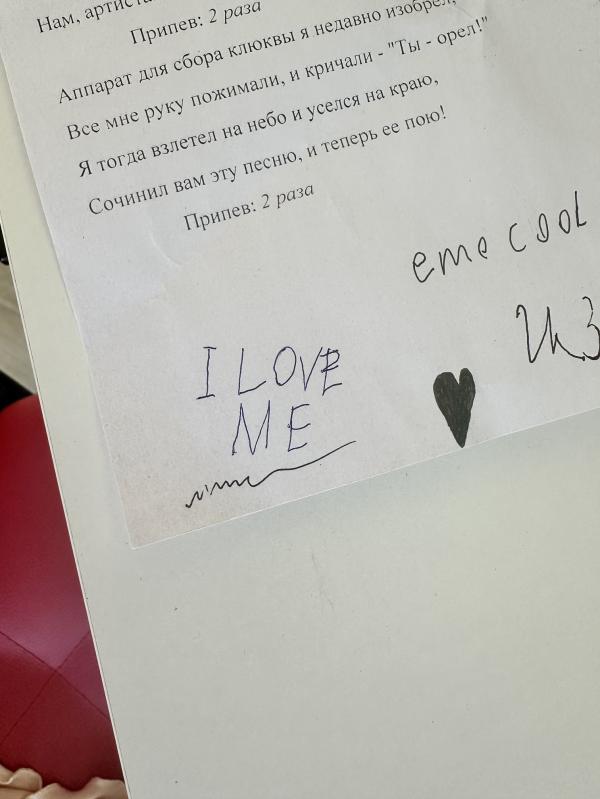 Нам,
Припев: 2 раза
Аппарат для сбора клюквы я недавно изобрел,
Все мне руку пожимали, и кричали - "Ты - орел!"
Я тогда взлетел на небо и уселся на краю,
Сочинил вам эту песню, и теперь ее пою!
Припев: 2 раза
eme cool
I LOVE
ME